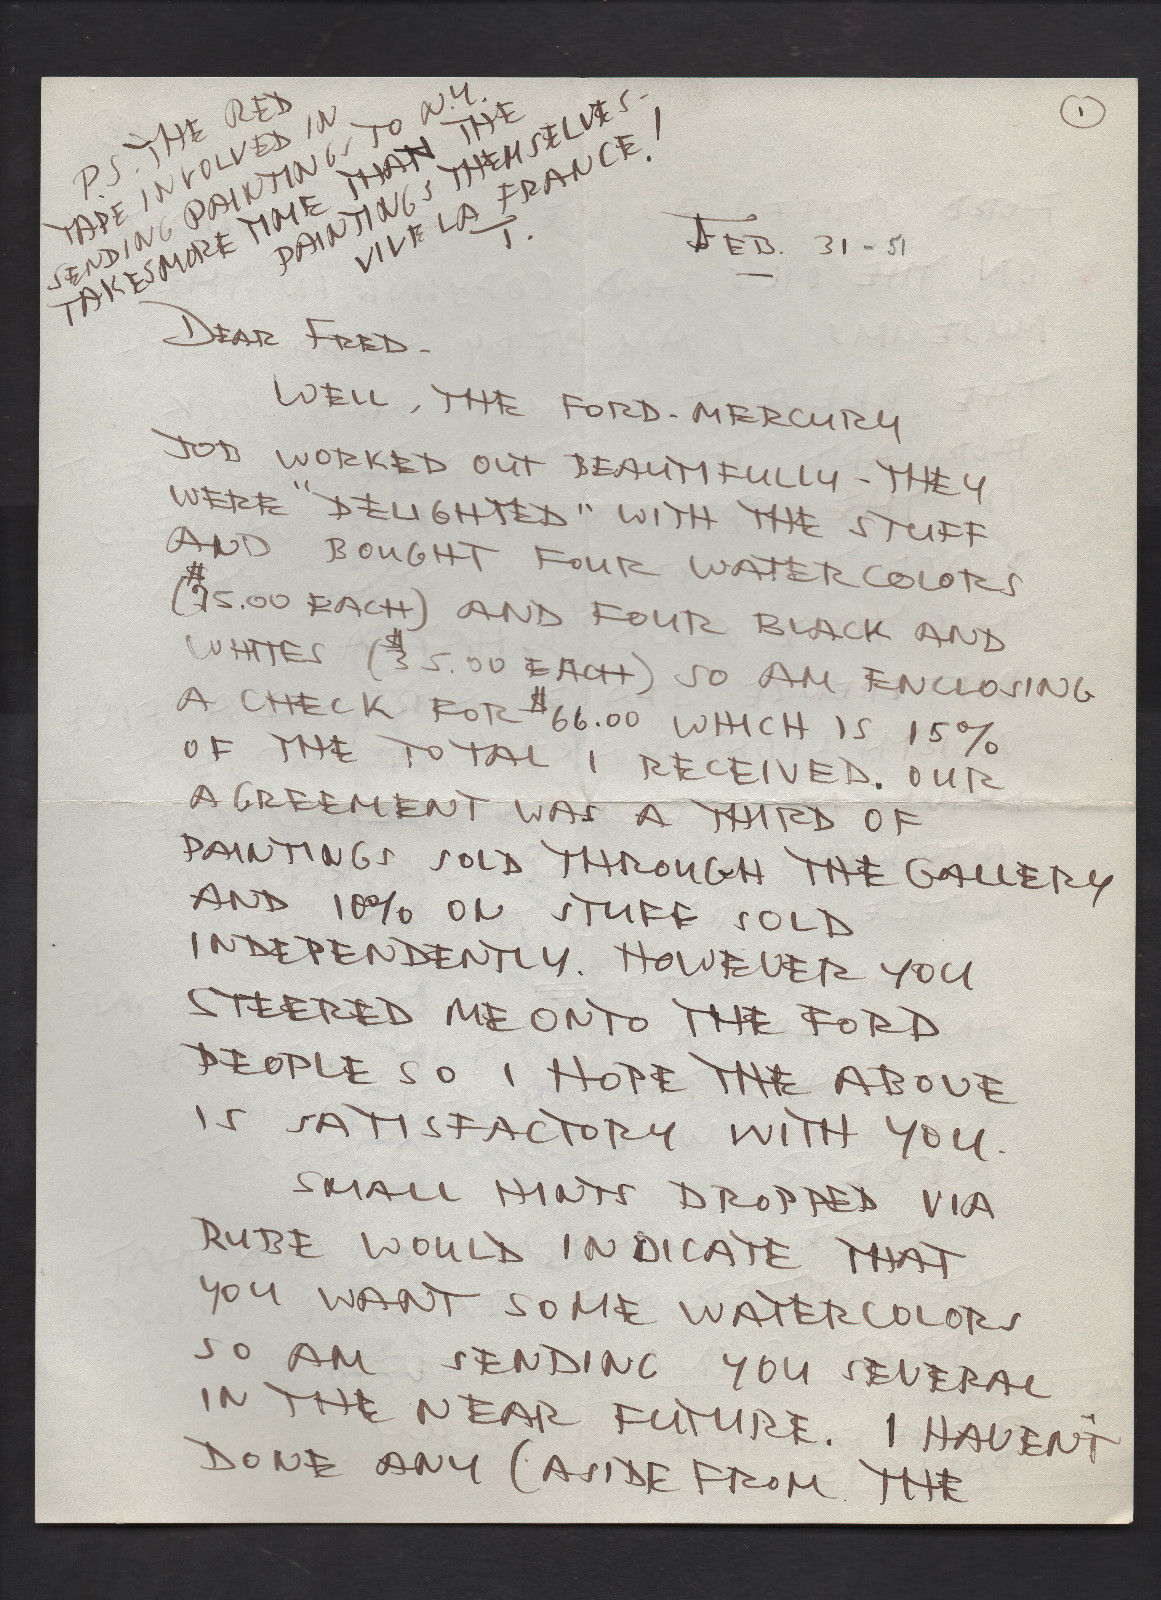 1
P.S. THE RED
TAPE INVOLVED IN
SENDING PAINTINGS TO N.Y.
TAKES MORE TIME THAN THE
PAINTINGS THEMSELVES-
VIVE LA FRANCE!
T.
FEB. 31-51
DEAR FRED-
WELL, THE FORD-MERCURY
JOB WORKED OUT BEAUTIFULLY-THEY
WERE "DELIGHTED" WITH THE STUFF
AND BOUGHT FOUR WATERCOLORS
($75.00 EACH) AND FOUR BLACK AND
WHITES ($35.00 EACH) SO AM ENCLOSING
A CHECK FOR $66.00 WHICH IS 15%
OF THE TOTAL I RECEIVED. OUR
AGREEMENT WAS A THIRD OF
PAINTINGS SOLD THROUGH THE GALLERY
AND 10% ON STUFF SOLD
INDEPENDENTLY. HOWEVER YOU
STEERED ME ONTO THE FORD
PEOPLE SO I HOPE THE ABOVE
IS SATISFACTORY WITH YOU.
SMALL HINTS DROPPED VIA
RUBE WOULD INDICATE THAT
YOU WANT SOME WATERCOLORS
SO AM SENDING YOU SEVERAL
IN THE NEAR FUTURE. I HAVEN'T
DONE ANY (ASIDE FROM THE